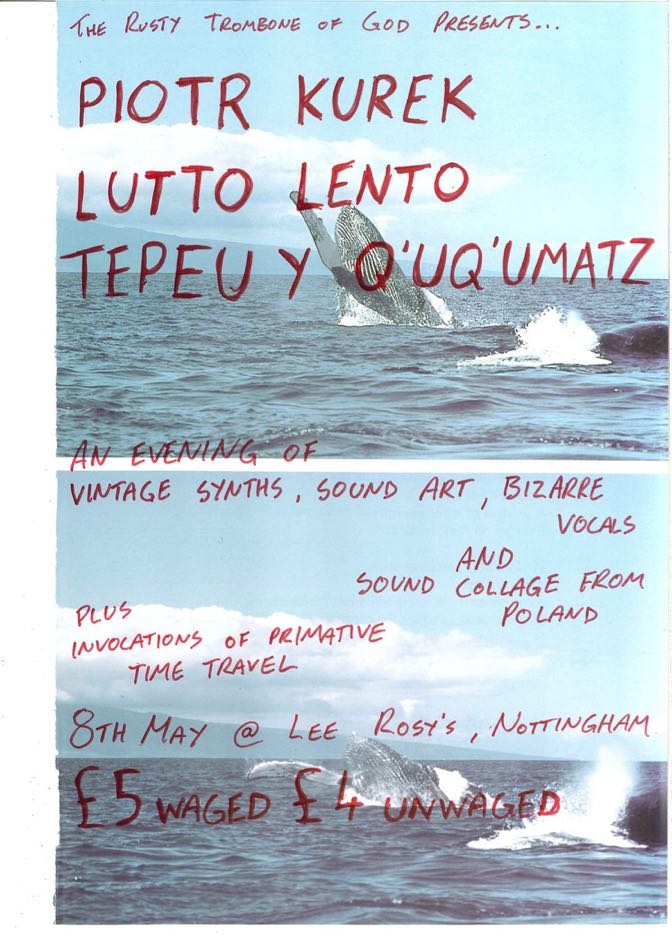 THE RUSTY TROMBONE OF GOD PRESENTS...
PIOTR KUREK
LUTTO LENTO
TEPEU Y Q'UQ'UMATZ
AN EVENING OF
VINTAGE SYNTHS, SOUND ART, BIZARRE
VOCALS
AND
SOUND COLLAGE FROM
POLAND
PLUS
INVOCATIONS OF PRIMATIVE
TIME TRAVEL
8TH MAY @ LEE ROSY'S, NOTTINGHAM
£5 WAGED £4 UNWAGED